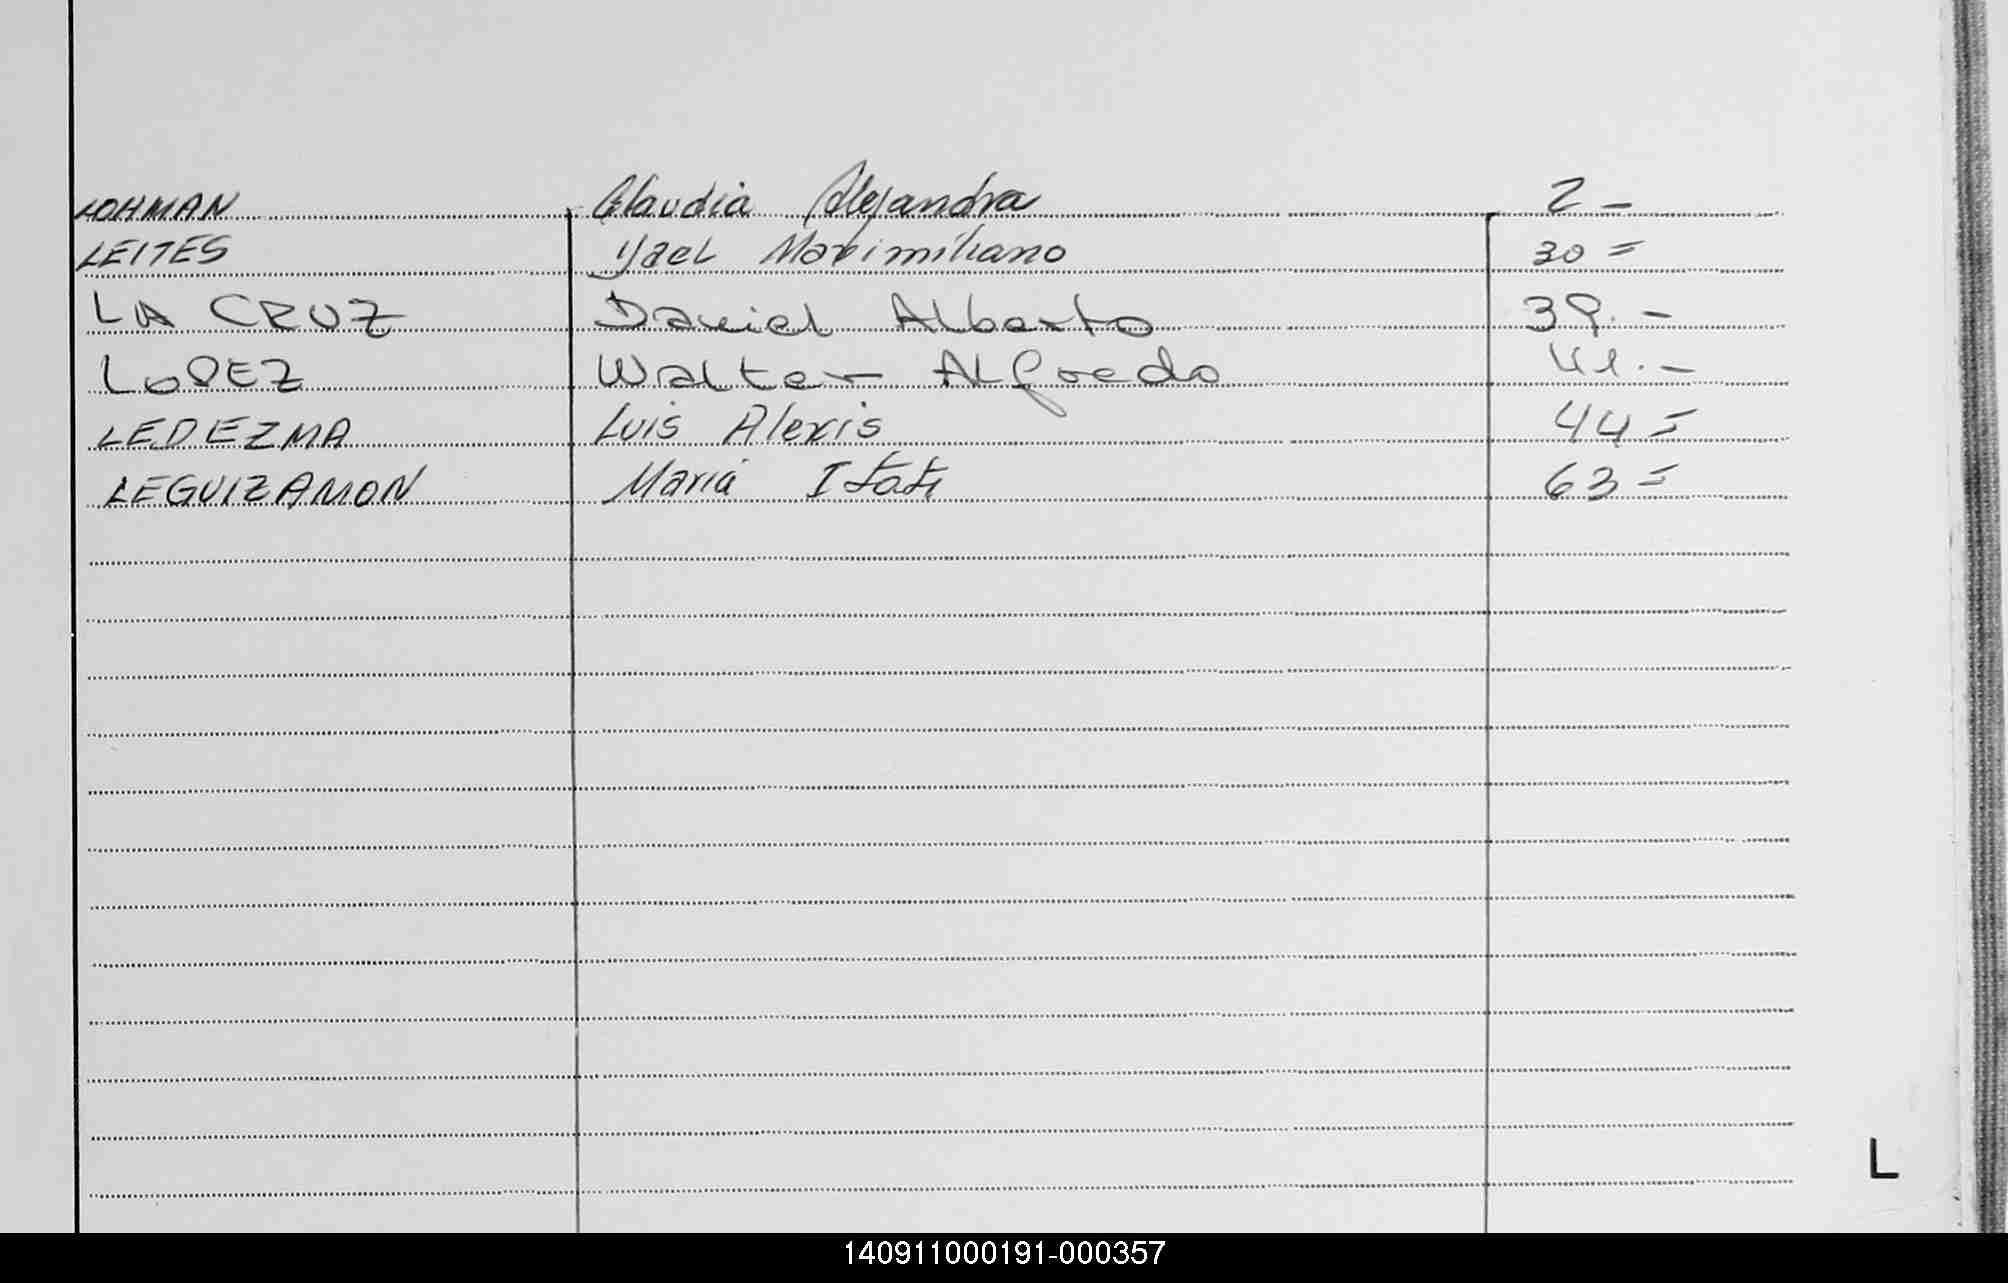 LOHMAN Claudia Alejandra 2 -
LEITES Yael Maximiliano 30 =
LA CRUZ Daniel Alberto 39. -
LOPEZ Walter Alfredo 41. -
LEDEZMA Luis Alexis 44 =
LEGUIZAMON Maria Itati 63 =
L
140911000191-000357